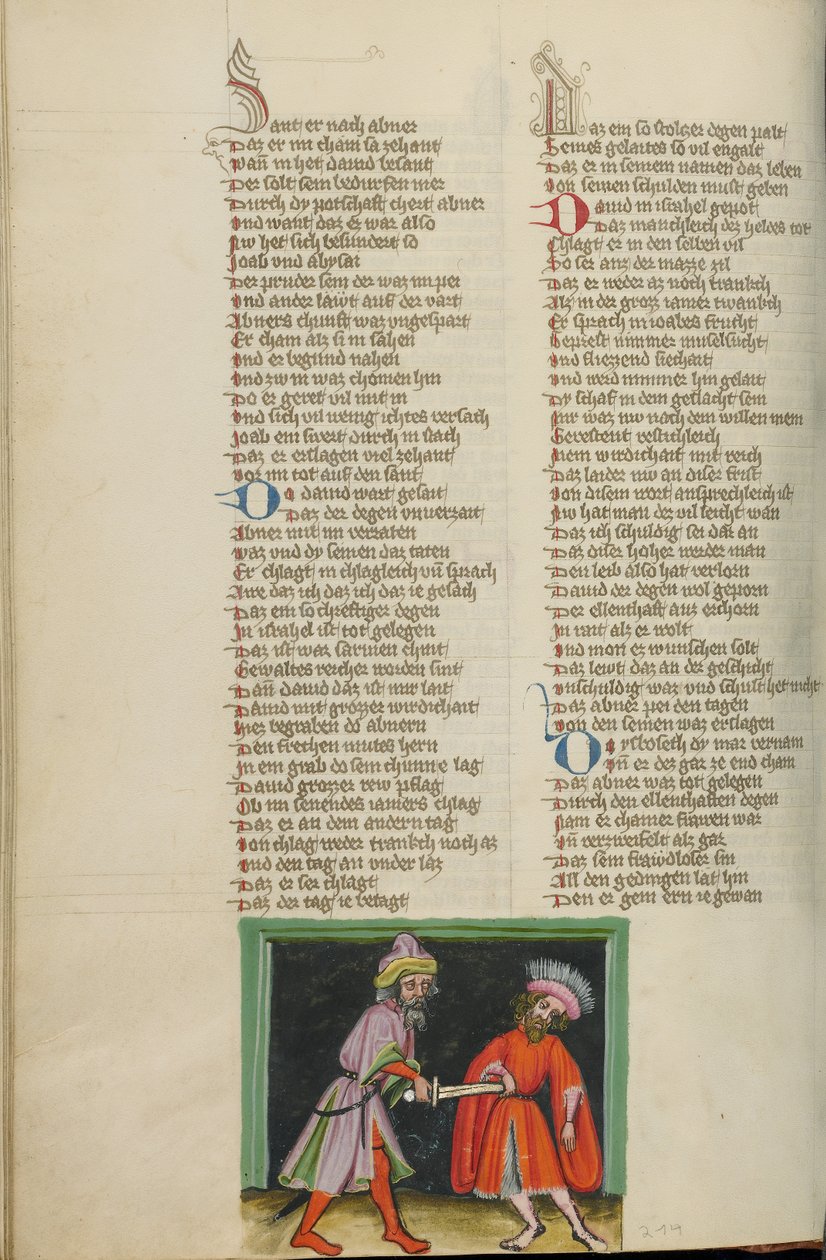 Sant er nach abner
Daz er im cham sa zehant
Wañ in het dauid besant
Der solt sein bedurfen mer
Durch dy potschaft chert abner
Vnd want daz ez war also
Nw het sich besundert so
Joab vnd abysai
Der pruder sein der waz im pei
Vnd ander läwt auf der vart
Abners chunft waz vngespart
Er cham alz si in sahen
Vnd er begund nahen
Vnd zw in waz chomen hin
Do er geret vil mit in
Vnd sich vil wenig ichtes versach
Joab ein swert durch in stach
Daz er erslagen viel zehant
Vor im tot auf den sant
Do dauid wart gesait
Daz der degen vnuerzait
Abner mit im verraten
Waz vnd dy seinen daz taten
Er chlagt in chlagleich vñ sprach
Awe daz ich daz ich daz ie gesach
Daz ein so chreftiger degen
In israhel ist tot gelegen
Daz ist war sarwien chint
Gewaltes reicher worden sint
Dañ dauid daz ist mir lait
Dauid mit grozzer wirdichait
Hiez begraben do abnern
Den frechen mutes hern
In ein grab do sein chunne lag
Dauid grozzer rew pflag
Ob im senendes iamers chlag
Daz er an dem andern tag
Von chlag weder tranckh noch az
Vnd den tag an vnder laz
Daz er ser chlagt
Daz der tag ie betagt
Daz ein so stolczer degen palt
Seines gelaites so vil engalt
Daz er in seinem namen daz leben
Von seinen schulden must geben
Dauid in israhel gepot
Daz manchleich dez heldes tot
Chlagt er in den selben vil
So ser auz der mazze zil
Daz er weder az noch tranckh
Alz in der groz iamer twanckh
Er sprach in ioabes frucht
Geprest nimmer miselsucht
Vnd fliezzend siechait
Vnd werd nimmer hin gelait
Dy schaf in dem geslacht sein
Nur waz nw nach dem willen mein
Gerestent vestichleich
Mein wirdichait mit reich
Daz laider nw an diser frist
Von disem wort ansprechleich ist
Nw hat man der vil leicht wan
Daz ich schuldig sei dar an
Daz diser hoher werder man
Den leib also hat verlorn
Dauid der degen wol geporn
Der ellenthaft auz erchorn
In rait alz er wolt
Vnd mon ez wunschen solt
Daz lewt daz an der geschicht
Vnschuldig waz vnd schult het nicht
Daz abner pei den tagen
Von den seinen waz erslagen
Do ysboseth dy mar vernam
Vñ er dez gar ze end cham
Daz abner waz tot gelegen
Durch den ellenthaften degen
Nam er chamer frawen war
Vñ verzweifelt alz gar
Daz sein frawdloser sin
All den gedingen lat hin
Den er gein ern ie gewan
219